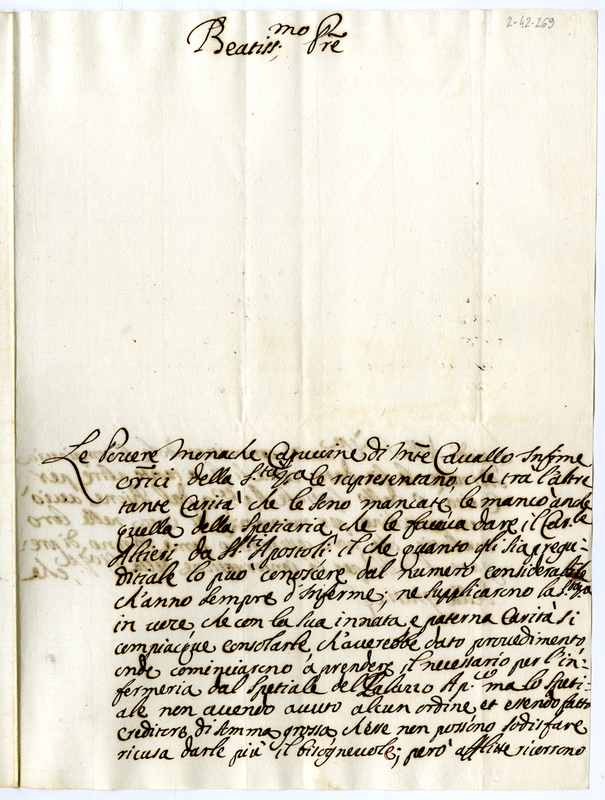 2-42-269
Beatiss.mo Pre
Le Povere Monache Capuccine di Mte Cavallo Infime
Orrici della S.tà V.ra le rapresentano, che trà l'altre
tante Carità che le sono mancate, le mancò anche
quella della spetiaria che le faceua dare il Car.le
Altieri da S.ti Apostoli: il che quanto gli sia pregiu-
ditiale lo può conoscere dal numero considerabile
ch'anno sempre d'Inferme; ne supplicarono la S.tà V.ra
in voce che con la sua innata, e paterna Carità si
compiacque consolarle ch'auerebbe dato prouedimento,
onde cominciarono à prendere il necessario per l'in-
fermeria dal spetiale del Palazzo Ap.co ma lo speti-
ale non auendo auuto alcun ordine, et essendo fatto
creditore di somma grossa ch'esse non possono sodisfare
ricusa darle più il bisogneuole; però afflitte ricorrono